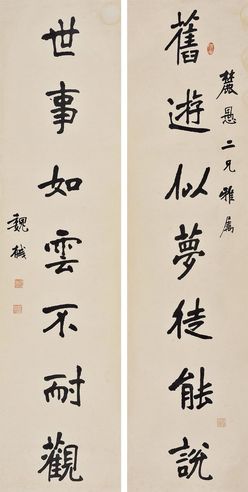 舊遊似夢徒能說
二兄雅屬
世事如雲不耐觀
魏戫